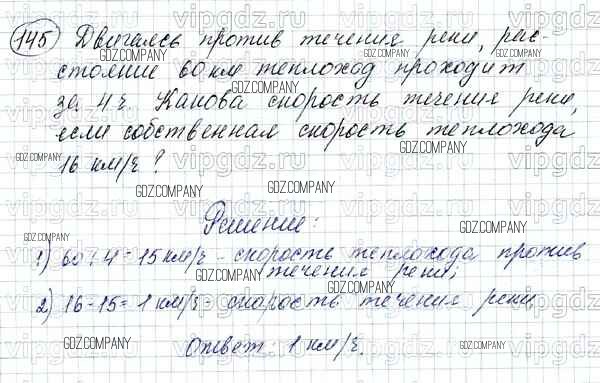 145 Двигаясь против течения реки, рас-
стояние 60 км теплоход проходит
за 4 ч. Какова скорость течения реки,
если собственная скорость теплохода
16 км/ч?
Решение:
1) 60 : 4 = 15 км/ч - скорость теплохода против
течения реки;
2) 16 - 15 = 1 км/ч - скорость течения реки.
Ответ: 1 км/ч.